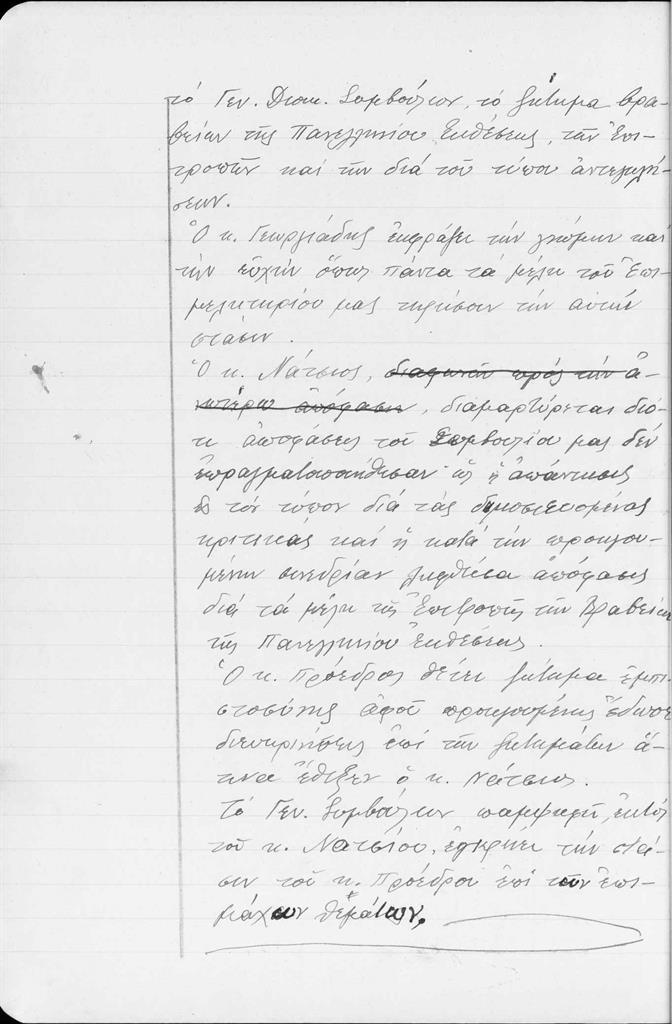 τό Γεν. Διοικ. Συμβούλιον, τό ζήτημα βρα-
βείων τῆς Πανελληνίου Ἐκθέσεως, τῶν Ἐπι-
τροπῶν καί τῶν διά τοῦ τύπου ἀντεγκλή-
σεων.
Ὁ κ. Γεωργιάδης ἐκφράζει τήν γνώμην καί
τήν εὐχήν ὅπως πάντα τά μέλη τοῦ Ἐπι-
μελητηρίου μας τηρήσουν τήν αὐτήν
στάσιν.
Ὁ κ. Νάτσιος, διαφωνῶν πρός τήν ἀ-
νωτέρω ἀπόφασιν, διαμαρτύρεται διό-
τι ἀποφάσεις τοῦ Συμβουλίου μας δέν
ἐπραγματοποιήθησαν ὡς ἡ ἀπάντησις
εἰς τόν τύπον διά τάς δημοσιευομένας
κριτικάς καί ἡ κατά τήν προηγου-
μένην συνεδρίαν ληφθεῖσα ἀπόφασις
διά τά μέλη τῆς Ἐπιτροπῆς τῶν Βραβείων
τῆς Πανελληνίου Ἐκθέσεως.
Ὁ κ. Πρόεδρος θέτει ζήτημα ἐμπι-
στοσύνης ἀφοῦ προηγουμένως ἔδωσε
διευκρινήσεις ἐπί τῶν ζητημάτων ἅ-
τινα ἔθιξεν ὁ κ. Νάτσιος.
Τό Γεν. Συμβούλιον παμψηφεί, ἐκτός
τοῦ κ. Νατσίου, ἐγκρίνει τήν στά-
σιν τοῦ κ. Πρόεδρου ἐπί τῶν ἐπι-
μάχων θεμάτων.